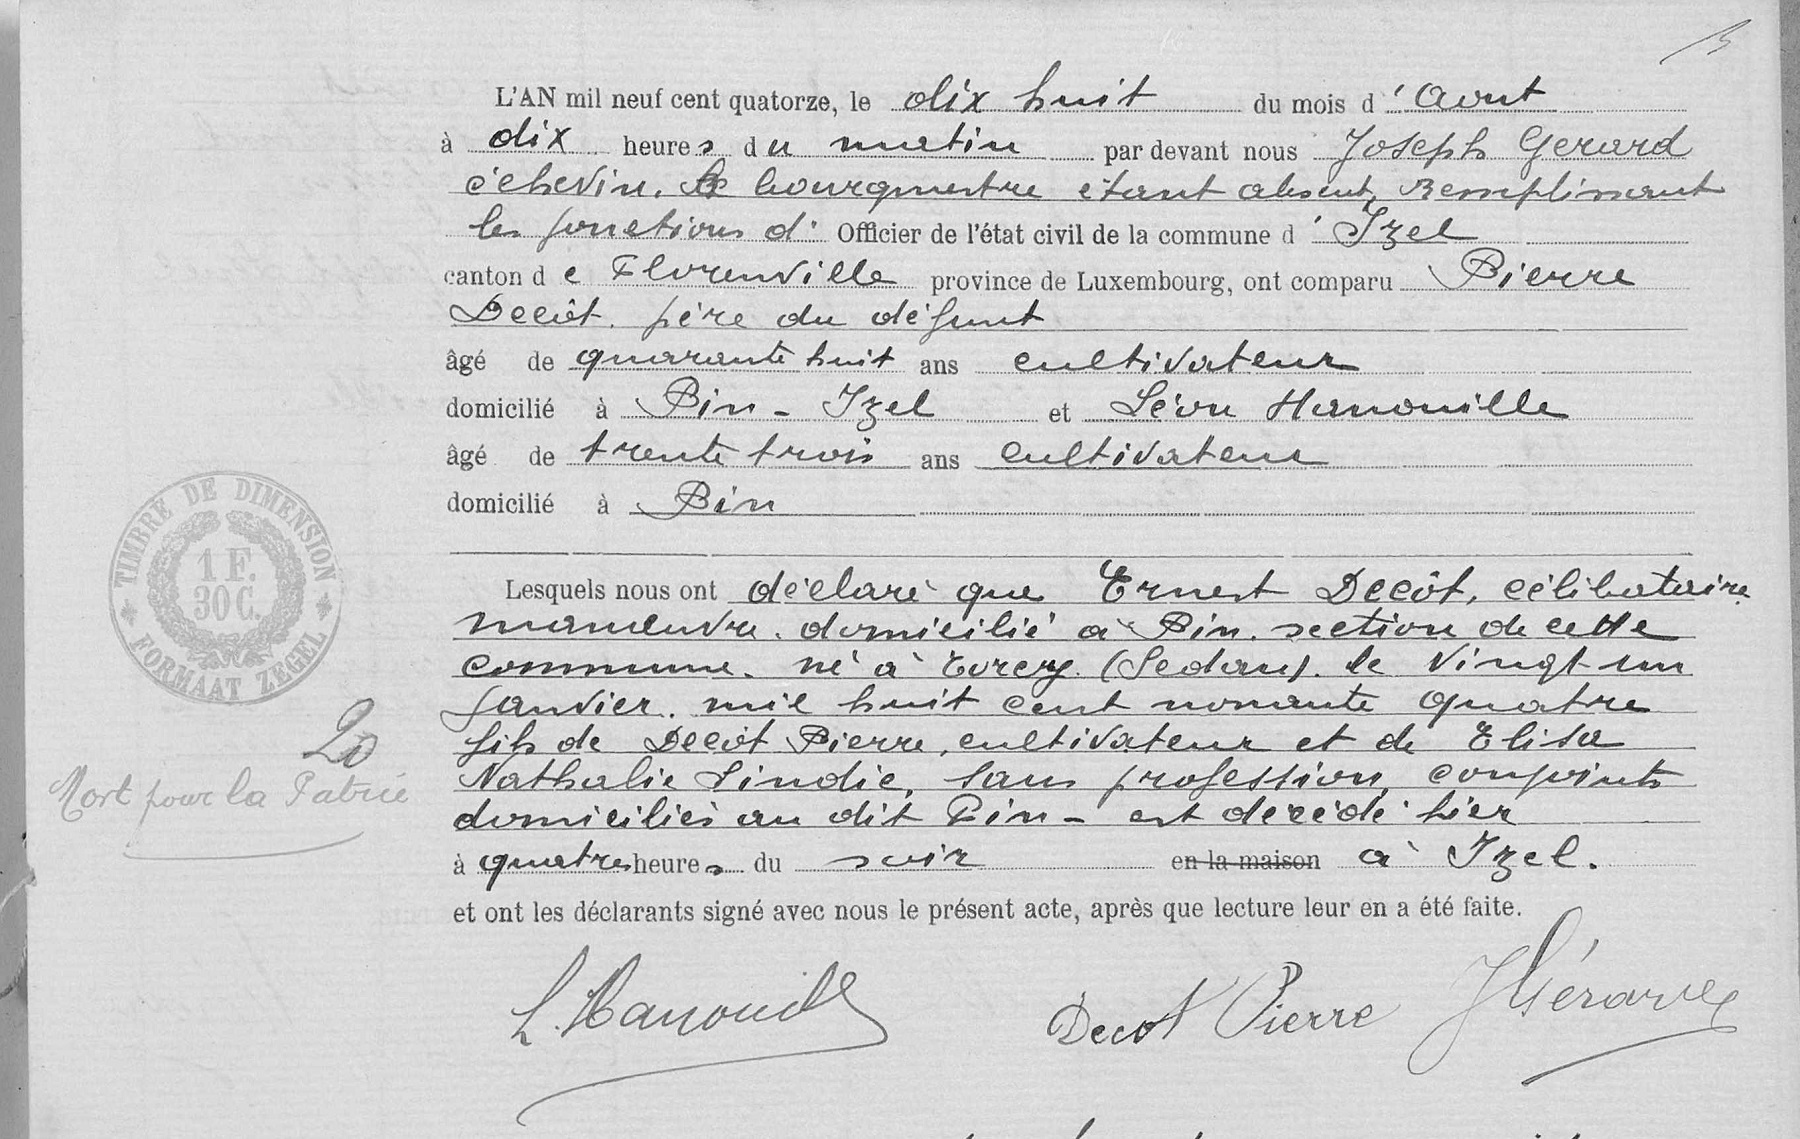 L'AN mil neuf cent quatorze, le dix huit du mois d'Aout
à dix heures du matin par devant nous Joseph Gerard
échevin, le bourgmestre étant absent, remplissant
les fonctions d' Officier de l'état civil de la commune d'Izel
canton de Florenville province de Luxembourg, ont comparu Pierre
Decôt, père du défunt
âgé de quarante huit ans cultivateur
domicilié à Pin - Izel et Léon Hanouille
âgé de trente trois ans cultivateur
domicilié à Pin
Lesquels nous ont déclaré que Ernest Decôt, célibataire
manœuvre, domicilié à Pin, section de cette
commune, né à (Sedan), le vingt un
Janvier, mil huit cent nonante quatre
fils de Decôt Pierre, cultivateur et de Elisa
Nathalie Lindie, sans profession, conjoints
domiciliés au dit Pin - est décédé hier
à quatre heures du soir en la maison à Izel.
et ont les déclarants signé avec nous le présent acte, après que lecture leur en a été faite.
L. Hanouille Decot Pierre J Gérard
TIMBRE DE DIMENSION
1 F.
30 C.
FORMAAT ZEGEL
20
Mort pour la Patrie